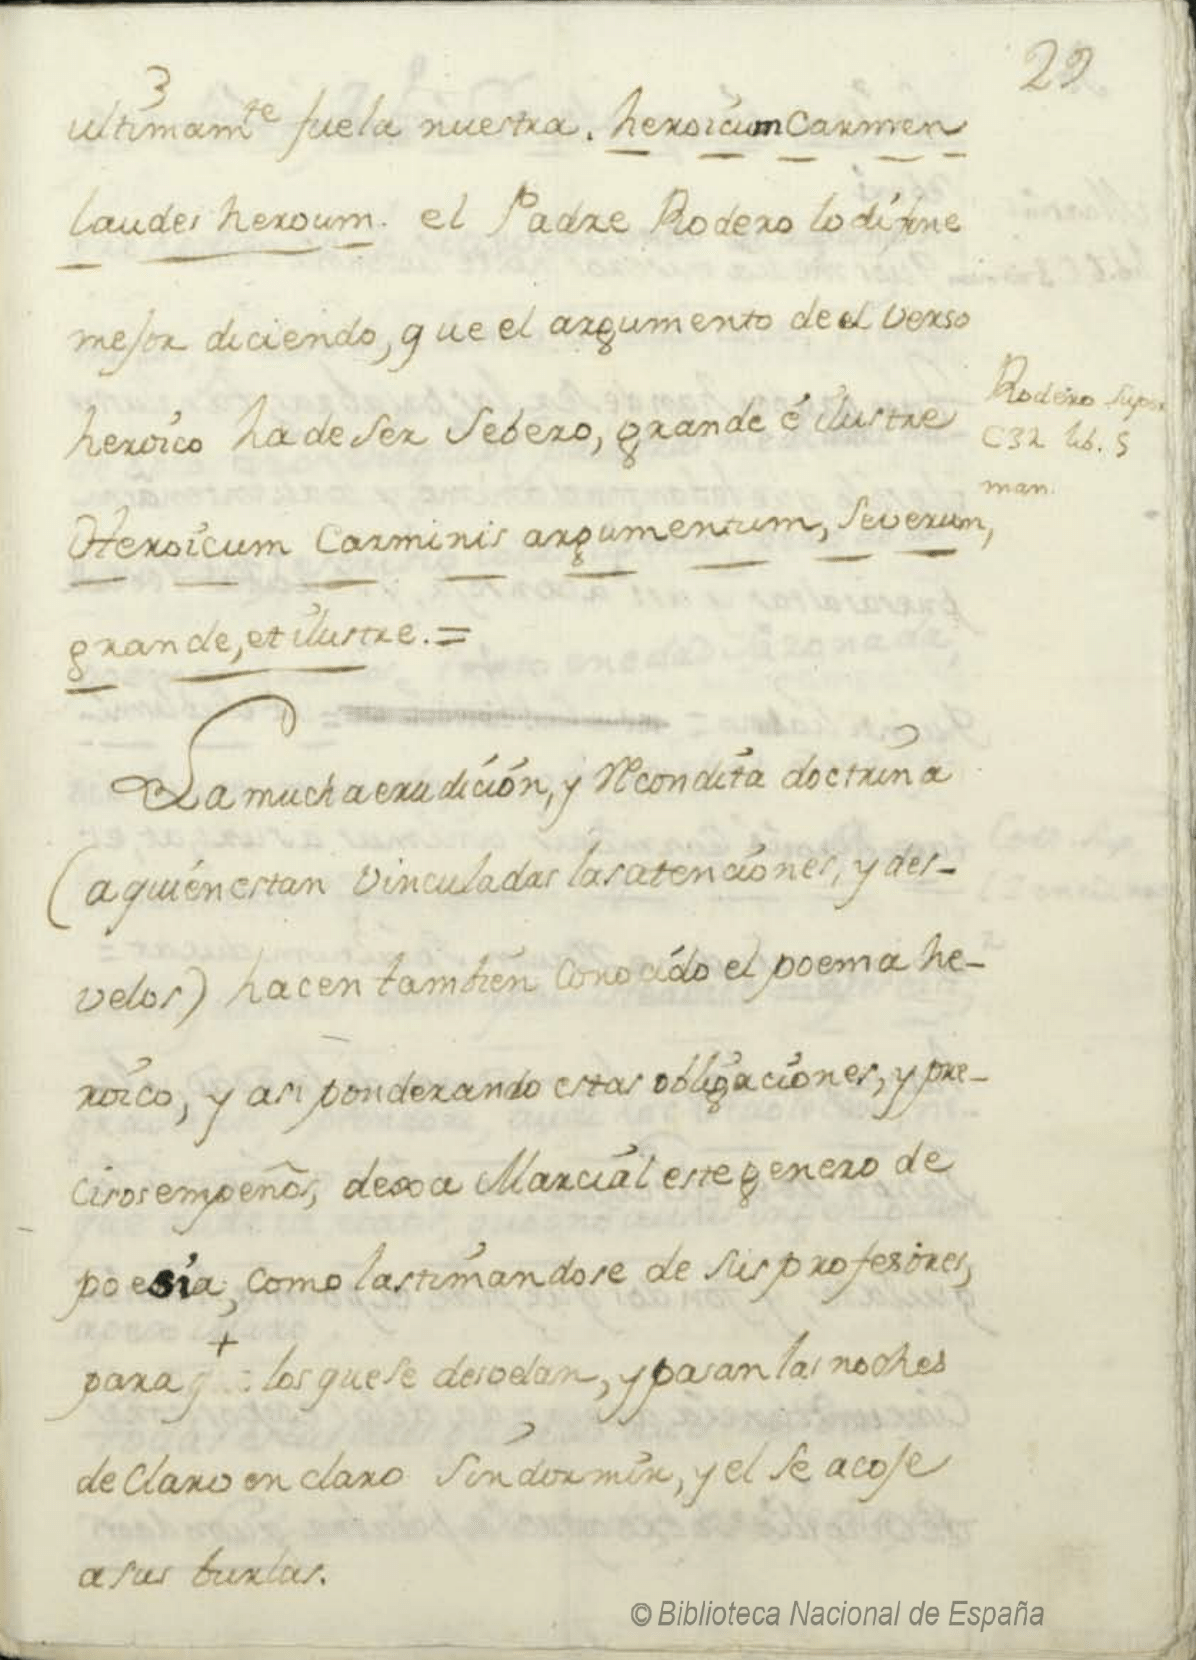 29
3
ultimamte fuela nuestra. heroicum Carmen
laudes heroum. el Padre Rodero lo difine
mejor diciendo, que el argumento de el verso
heroico ha de ser sebero, grande é ilustre
Rodero super
C32 lib. 5
man.
Heroicum Carminis argumentum, severum,
grande, et ilustre. =
La mucha erudición, y Recondita doctrina
(a quien estan vinculadas las atenciones, y des-
velos) hacen tambien conocido el poema he-
roico, y asi ponderando estas obligaciones, y pre-
cisos empeños, dexa Marcial este genero de
poesia, como lastimandose de sus profesores,
+
para los que se desvelan, y pasan las noches
de claro en claro sin dormir, y el se acoje
a sus burlas.
© Biblioteca Nacional de España